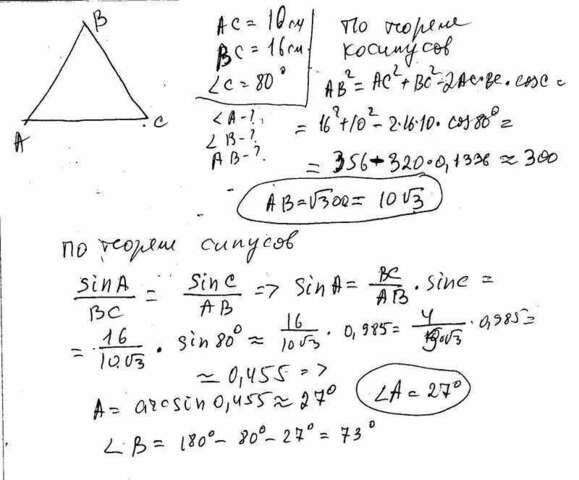 B
A
C
AC = 10 см
BC = 16 см
∠C = 80°
∠A - ?
∠B - ?
AB - ?
По теореме
косинусов
AB² = AC² + BC² - 2AC·BC·cosC =
= 16² + 10² - 2·16·10·cos80° =
= 356 - 320·0,1336 ≈ 300
AB = √300 = 10√3
По теореме синусов
sinA/BC = sinC/AB => sinA = BC/AB · sinC =
= 16/10√3 · sin80° ≈ 16/10√3 · 0,985 = 4/10√3 · 0,985 =
≈ 0,455 =>
A = arcsin 0,455 ≈ 27°
∠A = 27°
∠B = 180° - 80° - 27° = 73°